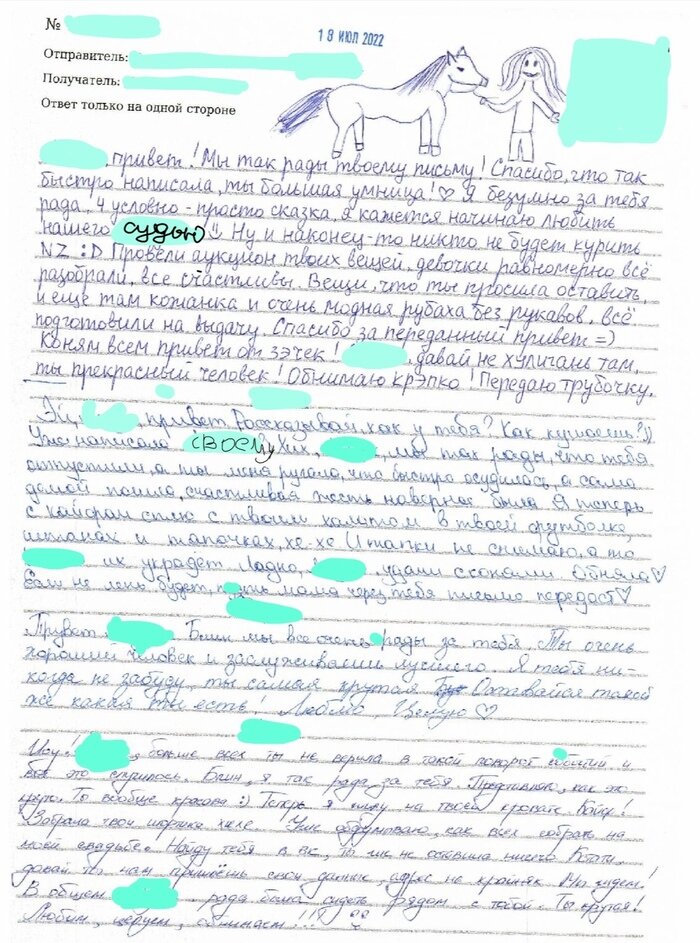 №
18 ИЮЛ 2022
Отправитель:
Получатель:
Ответ только на одной стороне
, привет! Мы так рады твоему письму! Спасибо, что так
быстро написала, ты большая умница!♡ Я безумно за тебя
рада, 4 условно - просто сказка, я кажется начинаю любить
нашего судью Ну и наконец-то никто не будет курить
NZ :D Провели аукцион твоих вещей, девочки равномерно всё
разобрали, все счастливы. Вещи, что ты просила оставить,
и ещё там кожанка и очень модная рубаха без рукавов, всё
подготовили на выдачу. Спасибо за переданный привет =)
Коням всем привет от зэчек! , давай не хулигань там,
ты прекрасный человек! Обнимаю крэпко! Передаю трубочку.
Эй, , привет. Рассказывай, как у тебя? Как кушаешь?))
Уже написала своему , мы так рады, что тебя
отпустили, а ты меня ругала, что быстро осудилась, а сама
домой пошла, счастливая жесть наверное была. Я теперь
с кайфом сплю с твоим халатом в твоей футболке,
штанах и тапочках, хе-хе И тапки не снимаю, а то
их украдёт Ладно, удачи с конями. Обняла♡
Если не лень будет, пусть мама через тебя письмо передаст♡
Привет, . Блин, мы все очень рады за тебя. Ты очень
хороший человек и заслуживаешь лучшего. Я тебя ни-
когда не забуду, ты самая крутая Оставайся такой
же какая ты есть! Люблю, Целую ♡
, больше всех ты не верила в такой поворот событий и
всё это случилось. Блин, я так рада за тебя. Представляю, как это
круто. Ты вообще красава :) Теперь я живу на твоей кровати. Кайф!
Забрала твои шорты Уже обдумываю, как всех собрать на
моей свадьбе. Найду тебя в вк, ты же не оставила ничего Кстати,
давай ты нам пришлёшь свои данные, адрес на крайняк Мы ждём!
В общем , рада была сидеть рядом с тобой. Ты крутая!
Любим, целуем, обнимаем!!!